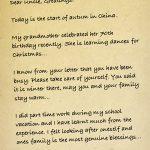 Dear Uncle, Greetings!
Today is the start of autumn in China.
My grandmother celebrated her 70th
birthday recently. She is learning dances for
Christmas...
I know from your letter that you have been
busy. Please take care of yourself. You said
it is winter there, may you and your family
stay warm...
I did part time work during my school
vacation and I have learnt much from the
experience. I felt looking after oneself and
ones family is the most genuine blessings...